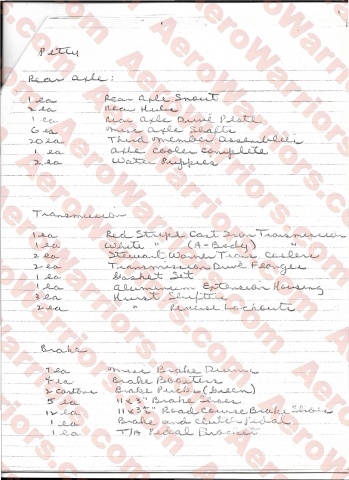 Petty
Rear Axle:
1 ea Rear Axle Snout
2 ea Rear Hubs
1 ea Rear Axle Drive Plate
6 ea Misc Axle Shafts
20 ea Third member assemblies
1 ea Axle Cooler Complete
2 ea Water Puppies
Transmission
1 ea Red Stripe Cast Iron Transmission
1 ea White " (A-Body) "
2 ea Stewart Warner Trans Coolers
2 ea Transmission Drive Flanges
1 ea Gasket Set
1 ea Aluminum Extension Housing
3 ea Hurst Shifters
2 ea " Reverse Lockouts
Brake
9 ea Misc Brake Drums
4 ea Brake Boosters
2 cartons Brake Pucks (Green)
5 ea 11x3" Brake Shoes
12 ea 11x3½" Road Course Brake Shoes
1 ea Brake and Clutch Pedal
1 ea T/A Pedal Bracket
AeroWarriors.com